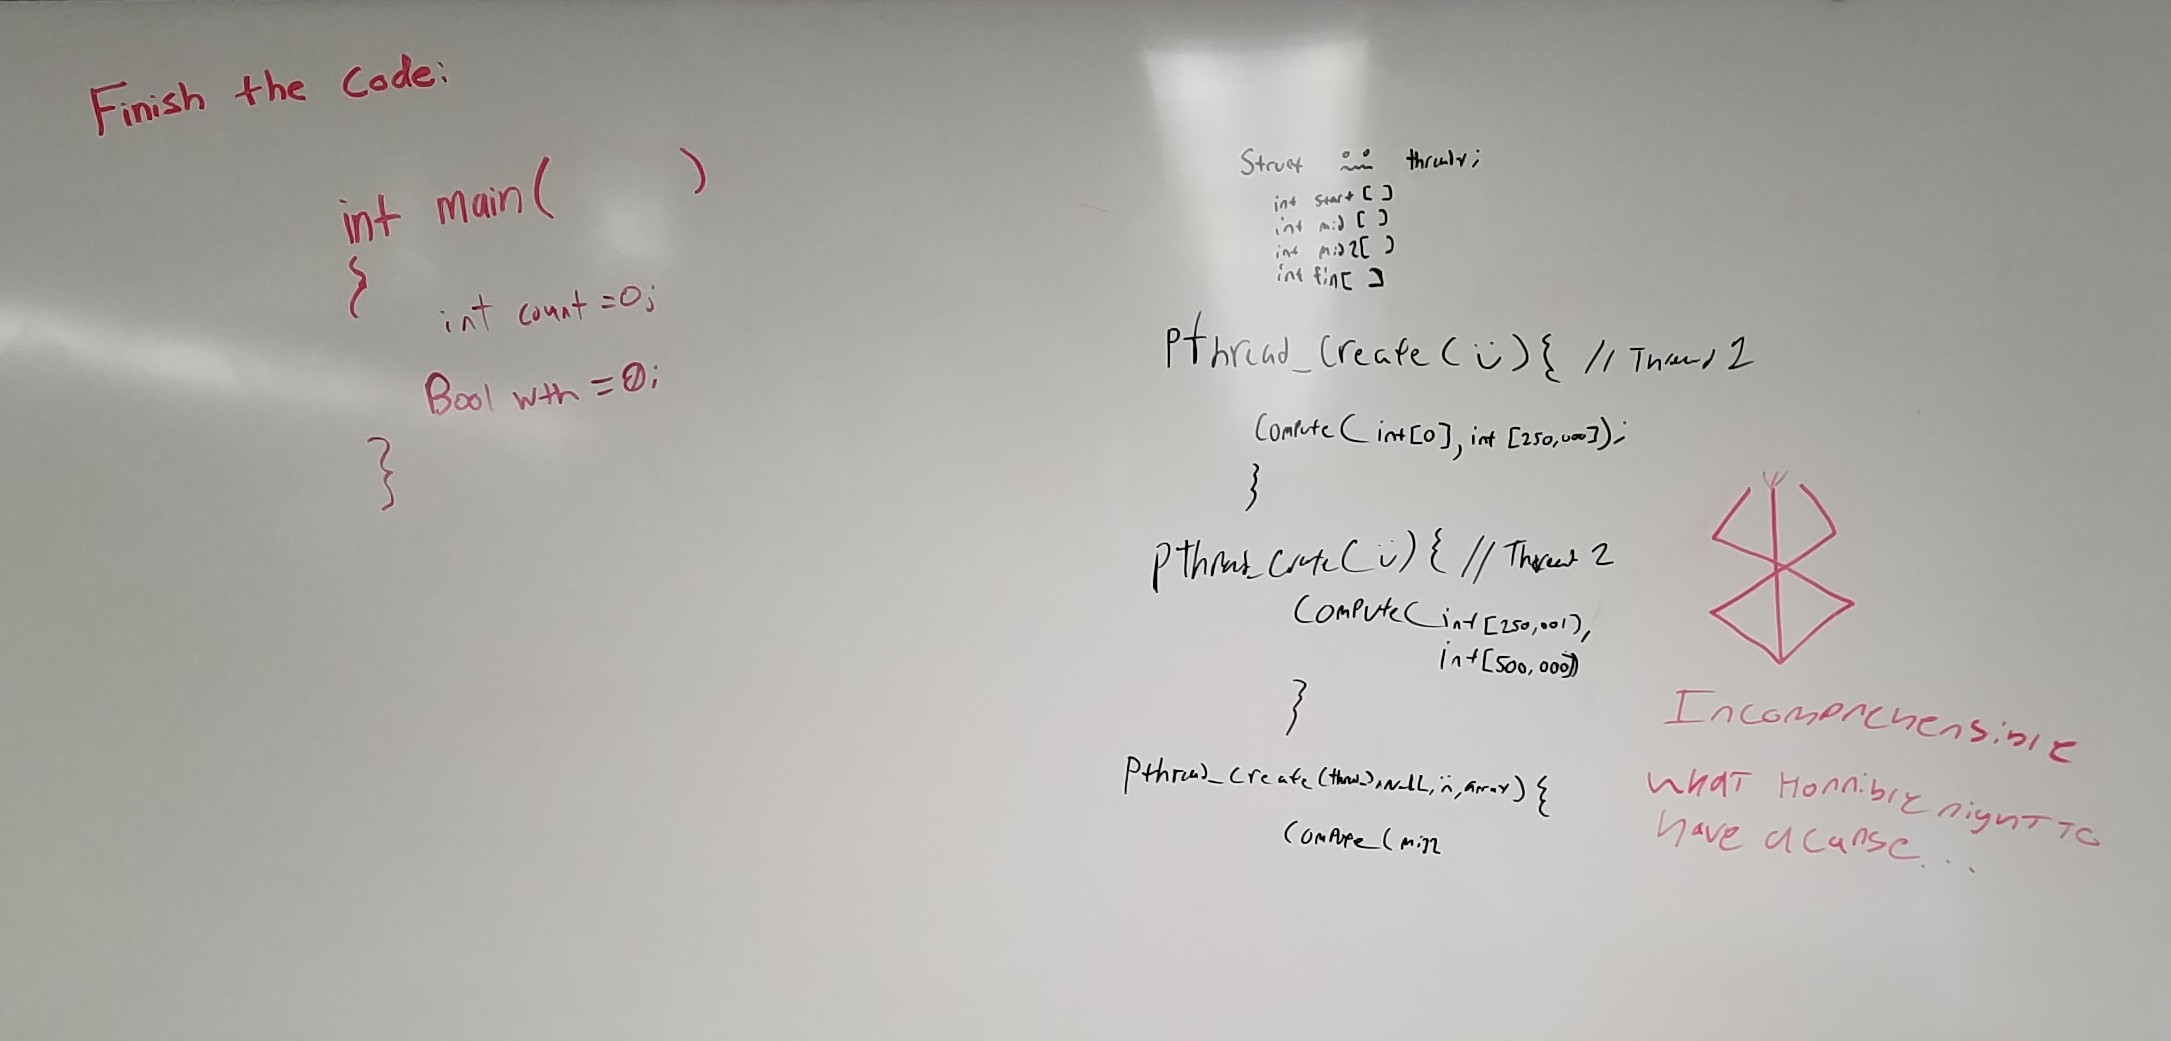 Finish the Code:
int main( )
{
int count =0;
Bool wth =0;
}
Struct
int start [ ]
int mid [ ]
int mid2[ ]
int fin[ ]
Pthread_Create ( ü ) { // Thread 2
Compute ( int [0], int [250,000]);
}
Pthread_Create ( ü ) { // Thread 2
Compute ( int [250,001),
int [500,000])
}
Pthread_Create (thread, NULL, ü, array) {
(mid2
Incomprehensible
What Horrible night to
have a curse...